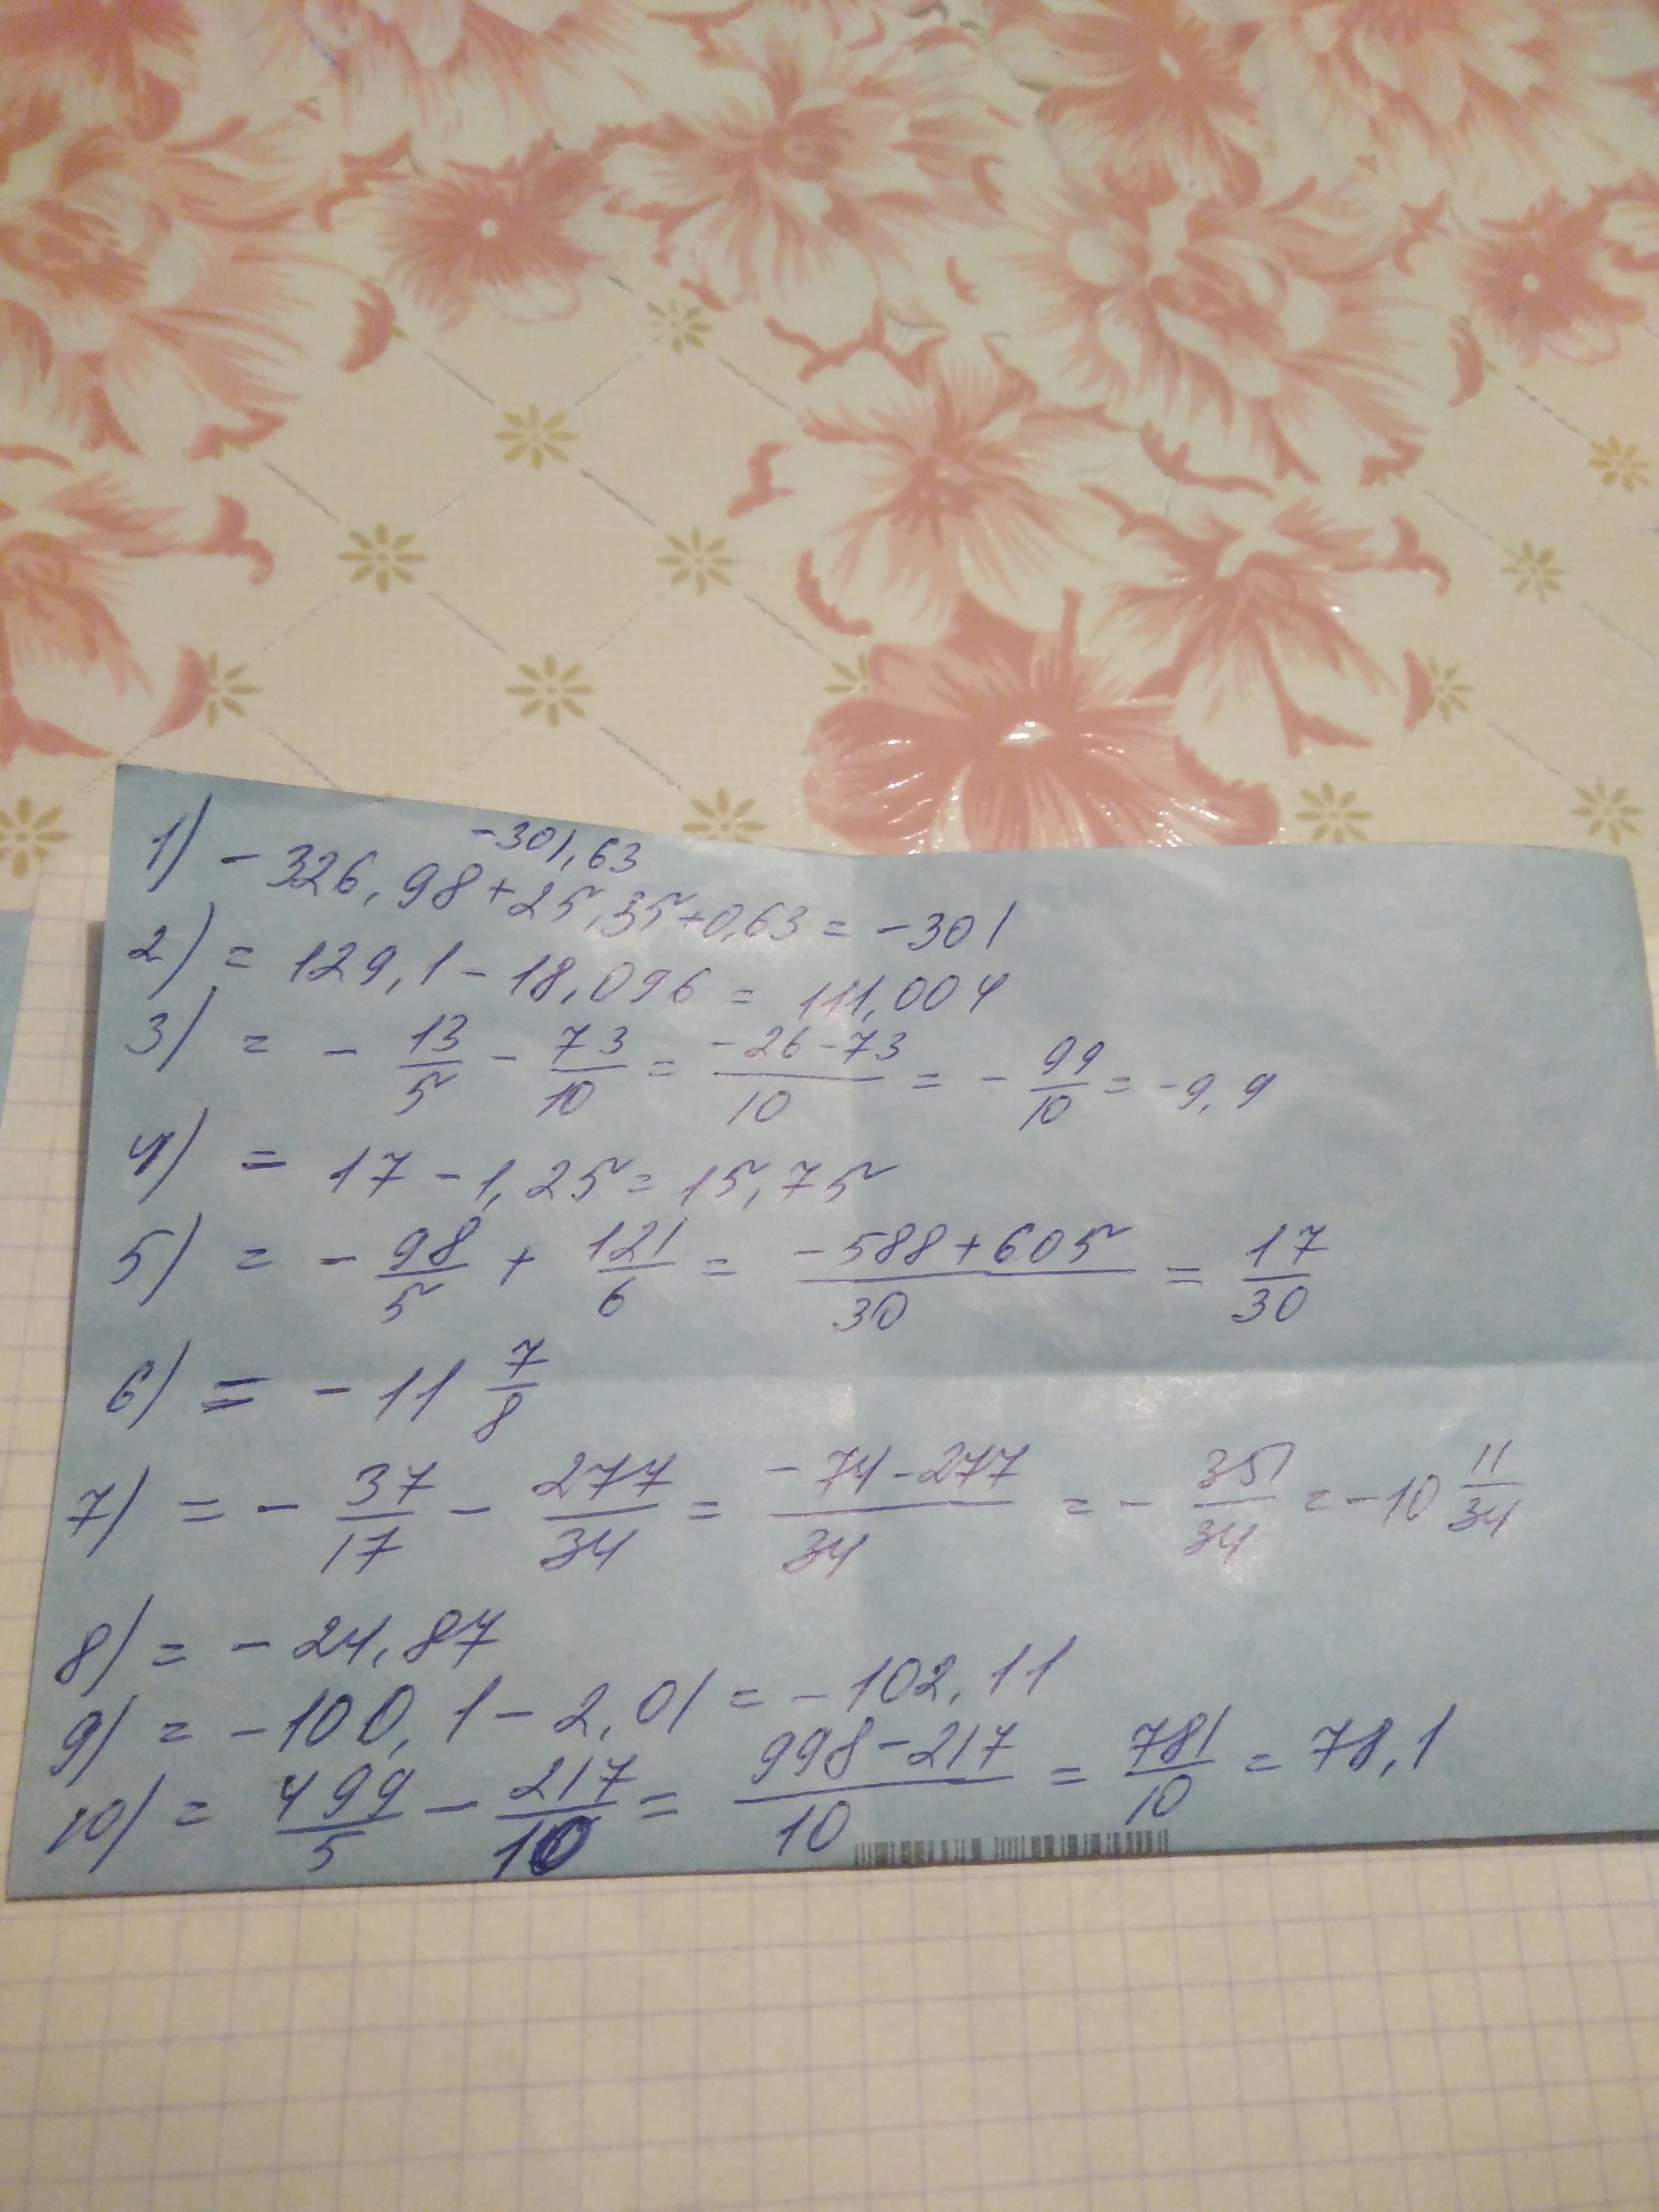 -301,63
1) -326,98+25,35+0,63 = -301
2) = 129,1 - 18,096 = 111,004
3) = - 13/5 - 73/10 = -26-73/10 = - 99/10 = -9,9
4) = 17 - 1,25 = 15,75
5) = - 98/5 + 121/6 = -588+605/30 = 17/30
6) = - 11 7/8
7) = - 37/17 - 277/34 = -74-277/34 = - 351/34 = -10 11/34
8) = - 24,87
9) = -100,1 - 2,01 = - 102,11
10) = 499/5 - 217/10 = 998-217/10 = 781/10 = 78,1